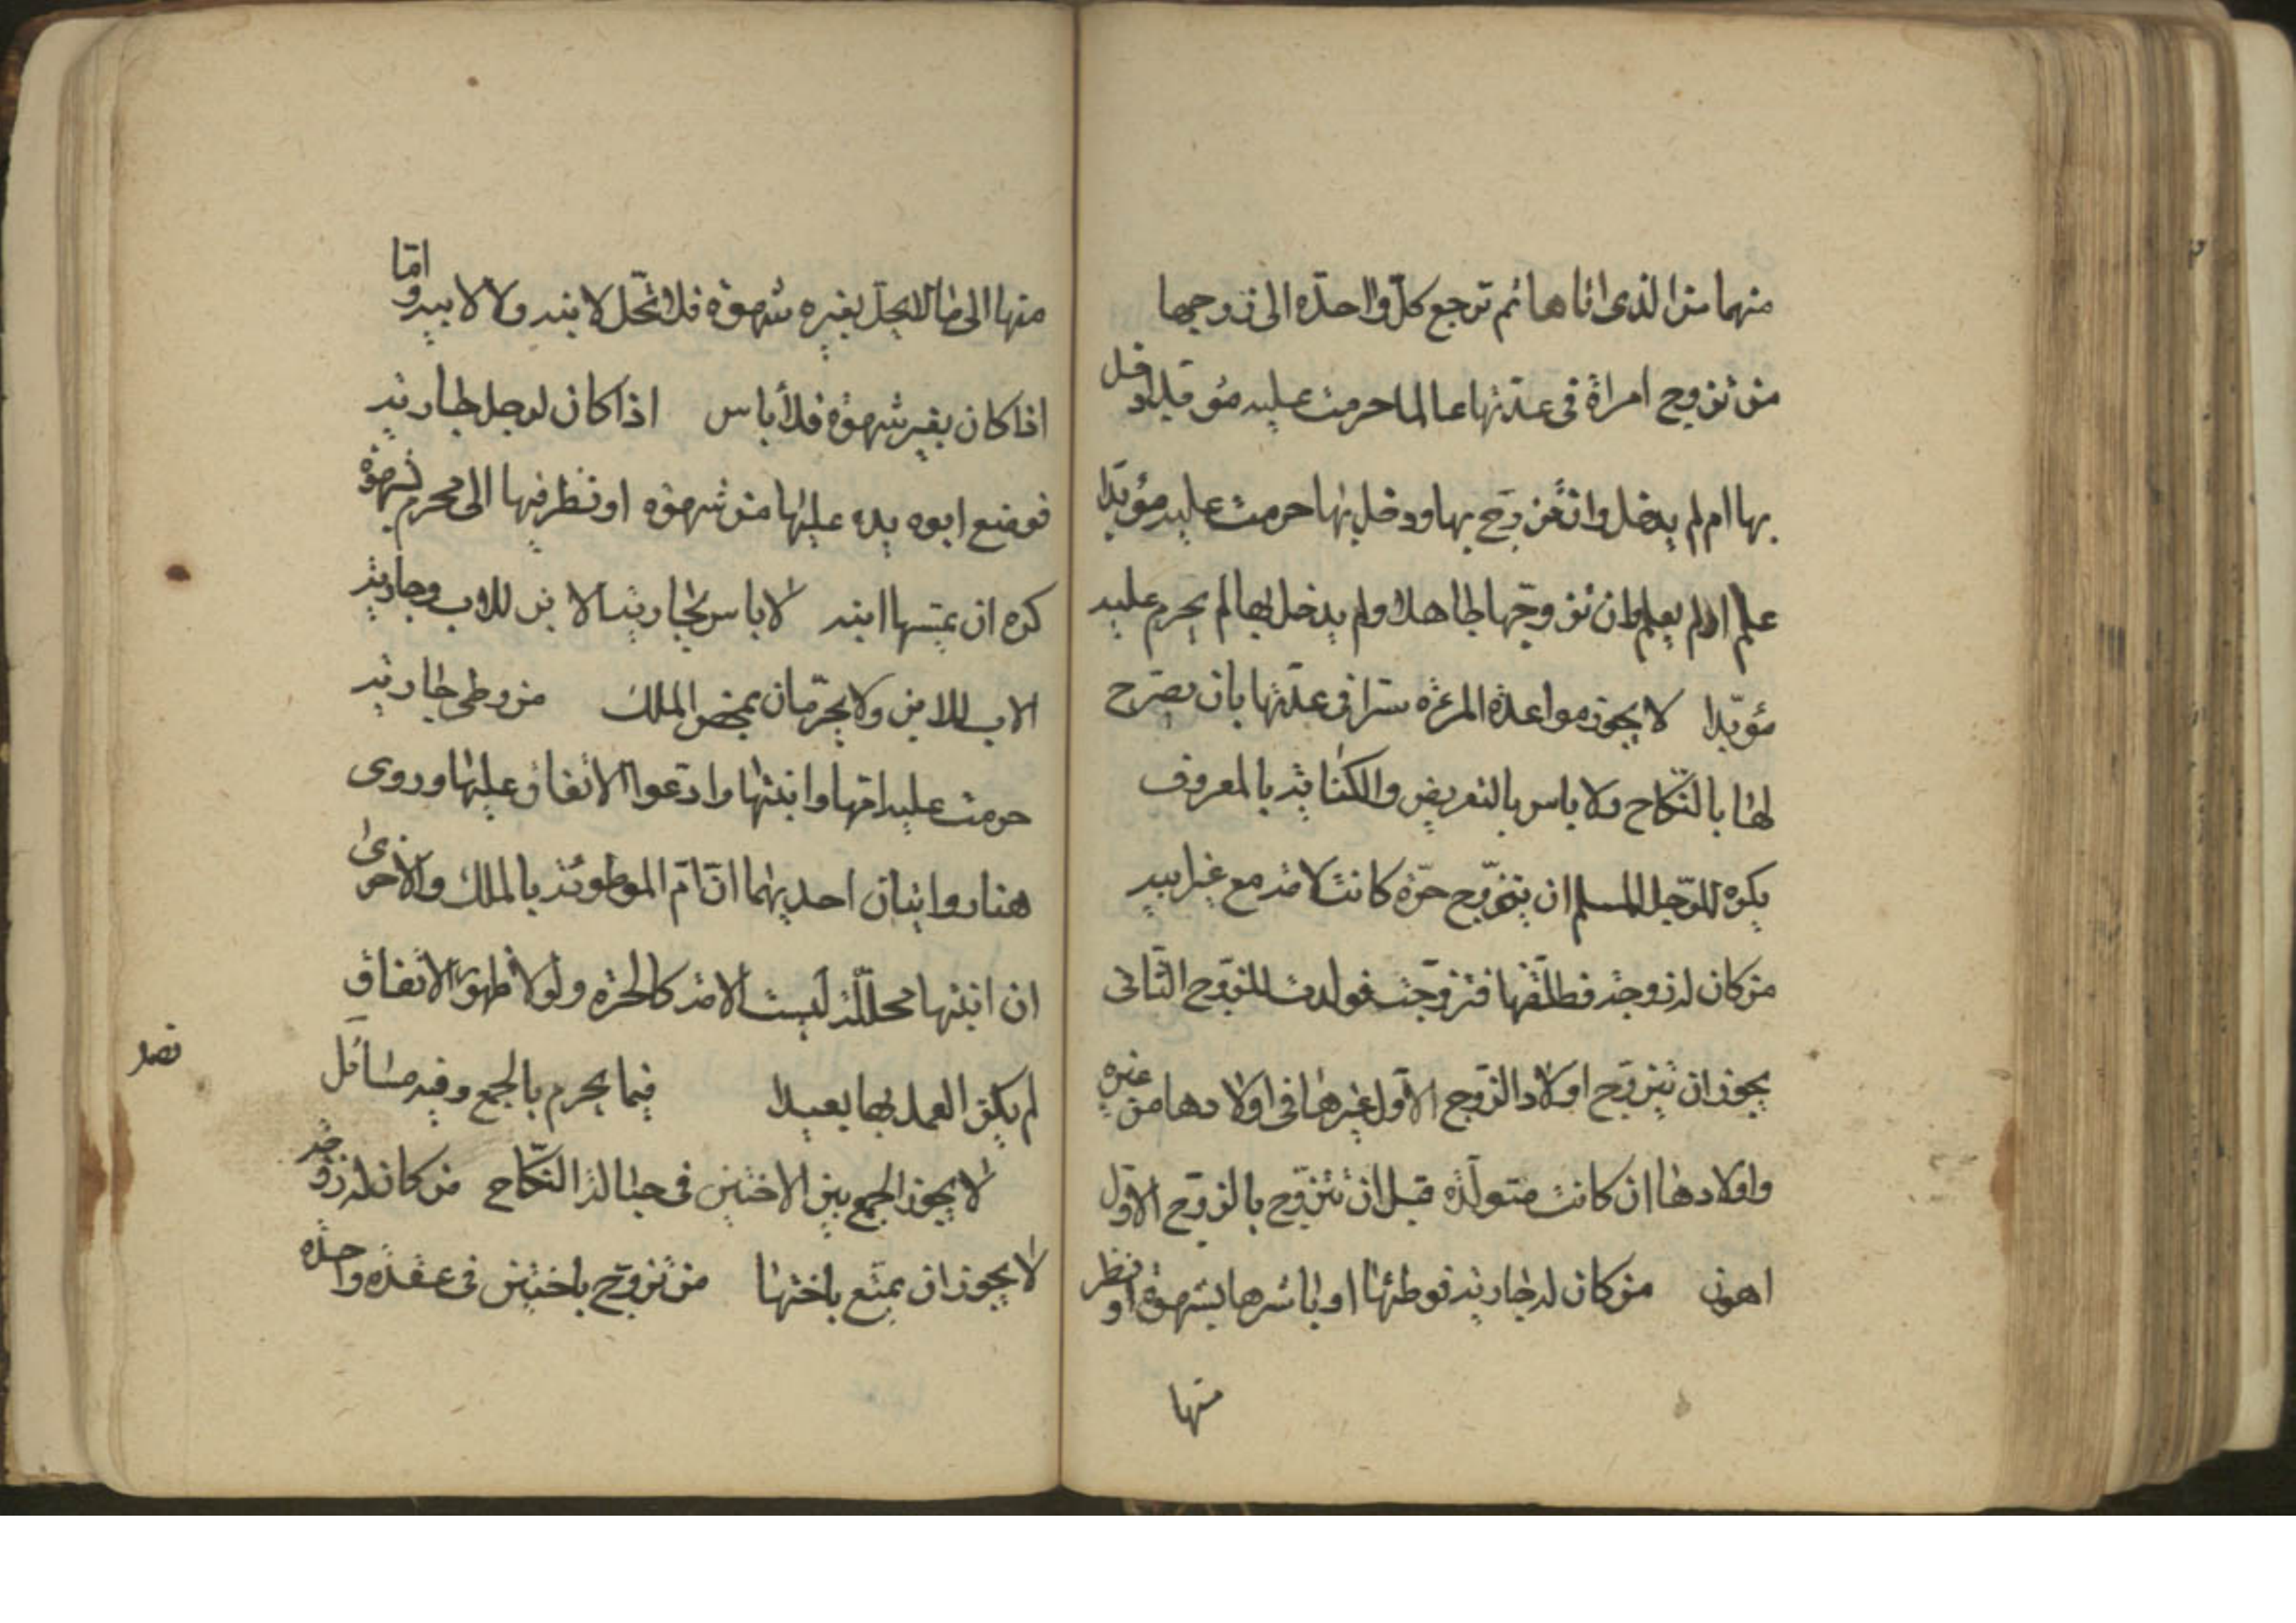 منهما من الذى اتاها ثم ترجع كلّ واحدة الى زوجها
من تزوج امراة فى عدتها عالما حرمت عليه مؤبدا دخل
بها ام لم يدخل وان تزوّج بها ودخل بها حرمت عليه مؤبّدا
علم او لم يعلم وان تزوجّها جاهلا ولم يدخل بها لم يحرم عليه
مؤبّدا لا يجوز مواعدة المرءة سرّا فى عدّتها بان يصرّح
لها بالنّكاح ولا باس بالتعريض والكناية بالمعروف
يكره للرّجل المسلم ان يتزوّج حرّة كانت لامه مع غير ابيه
من كان له زوجة فطلّقها فتزوّجت فولدت للزوّج الثّانى
يجوز ان يتزوّج اولاد الزّوج الاوّل غيرها فى اولادها من غيره
واولادها ان كانت متولّدة قبل ان تتزوّج بالزوّج الاوّل
اهون من كان له جارية فوطئها او باشرها بشهوة او نظر
منها
منها الى ما لا يحل لغيره شهوة فلا تحّل لابنه ولا لابيه وامّا
اذا كان بغير شهوة فلا بأس اذا كان لرجل جارية
فوضع ابوه يده عليها من شهوة او نظر فيها الى محرم شهوة
كره ان يمسها ابنه لا باس بجارية الابن للاب وجارية
الاب للابن ولا يحرّمان بمحض الملك من وطى جارية
حرمت عليه امّها وابنتها وادّعوا الاتفاق عليها وروى
هنا روايتان احديهما انّ امّ الموطوئة بالملك والاخرىٰ
ان ابنتها محلّلة ليست الامة كالحرّة ولولا ظهور الاتفاق
لم يكن العمل بها بعيدا فيما يحرم بالجمع وفيه مسائل
فصل
لا يجوز الجمع بين الاختين فى حبالة النّكاح من كان له زوجة
لا يجوز ان يمتّع باختها من تزوّج باختين فى عقدة واحدة